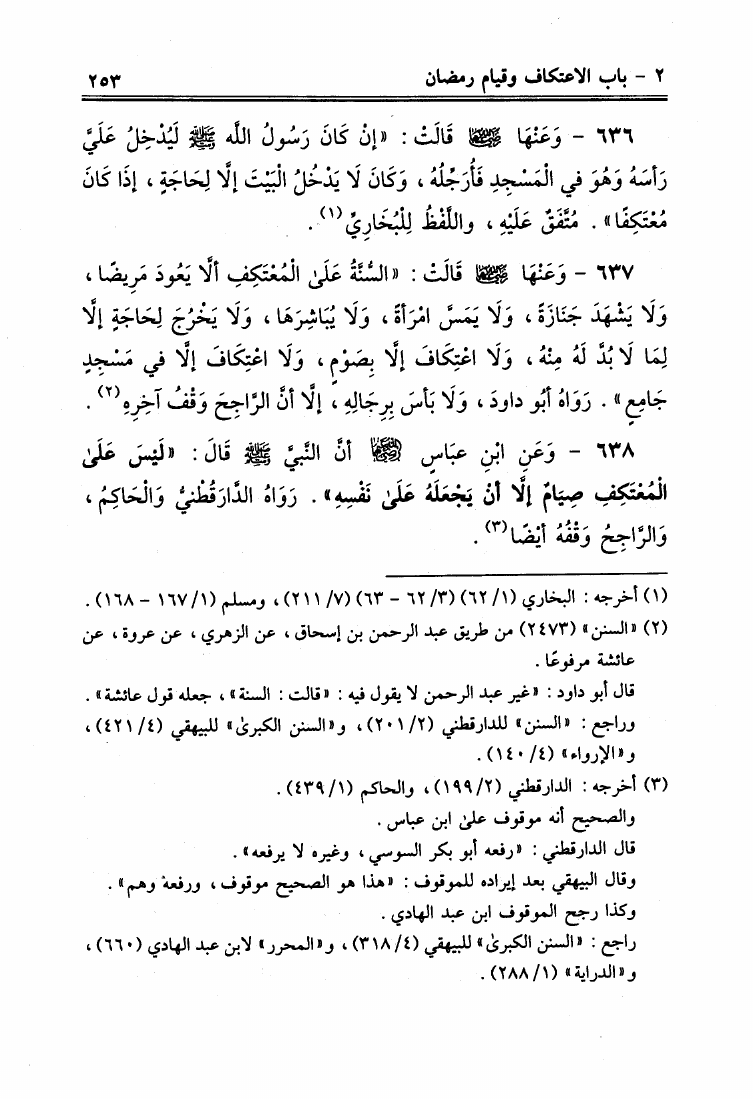 ٢ - باب الاعتكاف وقيام رمضان ٢٥٣
٦٣٦ - وَعَنْهَا رضي الله عنها قَالَتْ: «إِنْ كَانَ رَسُولُ اللَّه ﷺ لَيُدْخِلُ عَلَيَّ
رَأْسَهُ وَهُوَ في الْمَسْجِدِ فَأُرَجِّلُهُ، وَكَانَ لَا يَدْخُلُ الْبَيْتَ إِلَّا لِحَاجَةٍ، إِذَا كَانَ
مُعْتَكِفًا». مُتَّفَقٌ عَلَيْهِ، واللَّفْظُ لِلْبُخَارِيِّ(١).
٦٣٧ - وَعَنْهَا رضي الله عنها قَالَتْ: «السُّنَّةُ عَلَىٰ الْمُعْتَكِفِ أَلَّا يَعُودَ مَرِيضًا،
وَلَا يَشْهَدَ جَنَازَةً، وَلَا يَمَسَّ امْرَأَةً، وَلَا يُبَاشِرَهَا، وَلَا يَخْرُجَ لِحَاجَةٍ إِلَّا
لِمَا لَا بُدَّ لَهُ مِنْهُ، وَلَا اعْتِكَافَ إِلَّا بِصَوْمٍ، وَلَا اعْتِكَافَ إِلَّا في مَسْجِدٍ
جَامِعٍ». رَوَاهُ أَبُو داودَ، وَلَا بَأْسَ بِرِجَالِهِ، إِلَّا أنَّ الرَّاجِحَ وَقْفُ آخِرِهِ(٢).
٦٣٨ - وَعَنِ ابْنِ عبَاسٍ رضي الله عنهما أَنَّ النَّبِيَّ ﷺ قَالَ: «لَيْسَ عَلَىٰ
الْمُعْتَكِفِ صِيَامٌ إِلَّا أَنْ يَجْعَلَهُ عَلَىٰ نَفْسِهِ». رَوَاهُ الدَّارَقُطْنيُّ وَالْحَاكِمُ،
وَالرَّاجِحُ وَقْفُهُ أَيْضًا(٣).
(١) أخرجه: البخاري (١/ ٦٢) (٣/ ٦٢ - ٦٣) (٧/ ٢١١)، ومسلم (١/ ١٦٧ - ١٦٨).
(٢) «السنن» (٢٤٧٣) من طريق عبد الرحمن بن إسحاق، عن الزهري، عن عروة، عن
عائشة مرفوعًا.
قال أبو داود: «غير عبد الرحمن لا يقول فيه: «قالت: السنة»، جعله قول عائشة».
وراجع: «السنن» للدارقطني (٢/ ٢٠١)، و«السنن الكبرىٰ» للبيهقي (٤/ ٤٢١)،
و«الإرواء» (٤/ ١٤٠).
(٣) أخرجه: الدارقطني (٢/ ١٩٩)، والحاكم (١/ ٤٣٩).
والصحيح أنه موقوف علىٰ ابن عباس.
قال الدارقطني: «رفعه أبو بكر السوسي، وغيره لا يرفعه».
وقال البيهقي بعد إيراده للموقوف: «هذا هو الصحيح موقوف، ورفعهٔ وهم».
وكذا رجح الموقوف ابن عبد الهادي.
راجع: «السنن الكبرىٰ» للبيهقي (٤/ ٣١٨)، و«المحرر» لابن عبد الهادي (٦٦٠)،
و«الدراية» (١/ ٢٨٨).